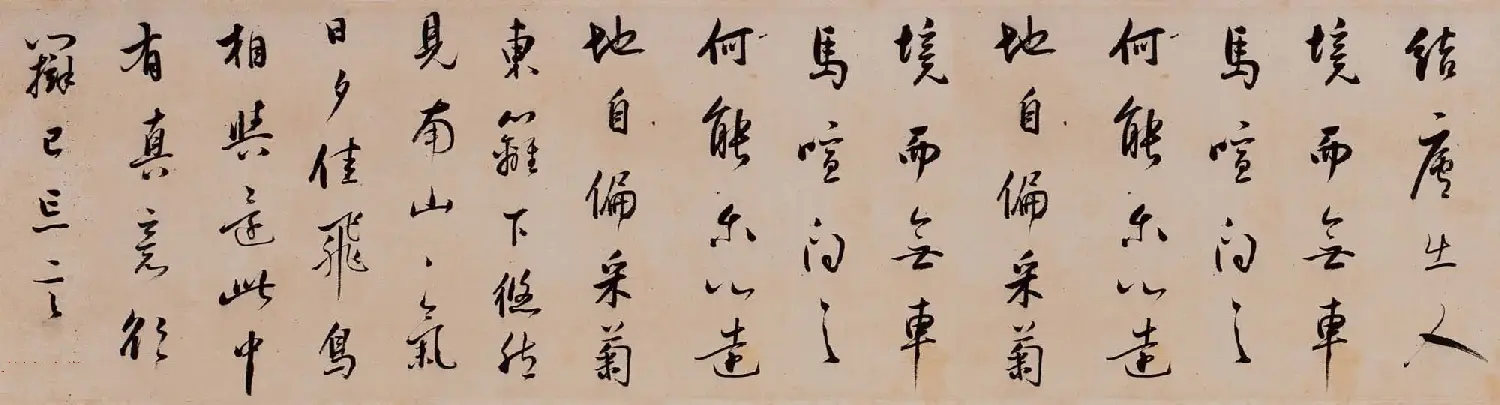 結廬在人
境而無車
馬喧問君
何能爾心遠
地自偏采菊
境而無車
馬喧問君
何能爾心遠
地自偏采菊
東籬下悠然
見南山山氣
日夕佳飛鳥
相與還此中
有真意欲
辯已忘言